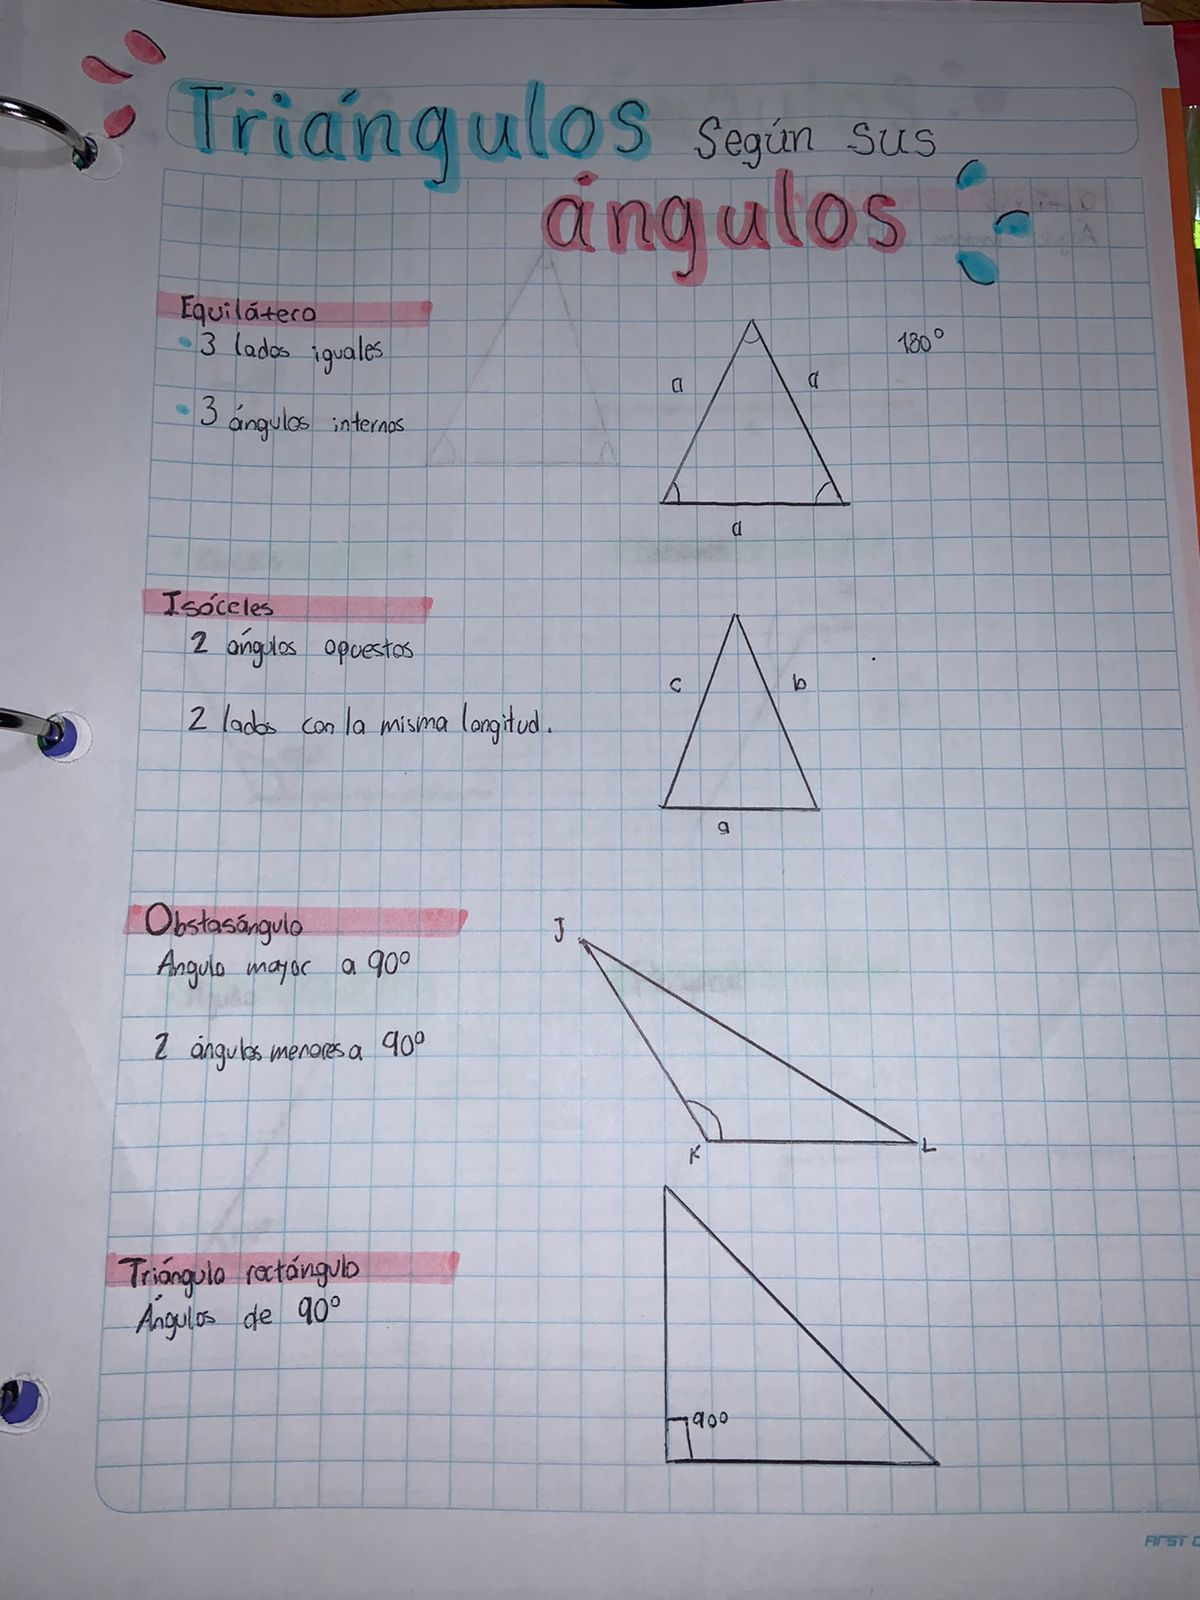 Triángulos Según sus
ángulos
Equilátero
3 lados iguales
3 ángulos internos
a
a
180°
a
Isóceles
2 ángulos opuestos
2 lados con la misma longitud.
c
b
a
Obstasángulo
Angulo mayor a 90°
2 ángulos menores a 90°
J
K
L
Triángulo rectángulo
Ángulos de 90°
90°
FIRST